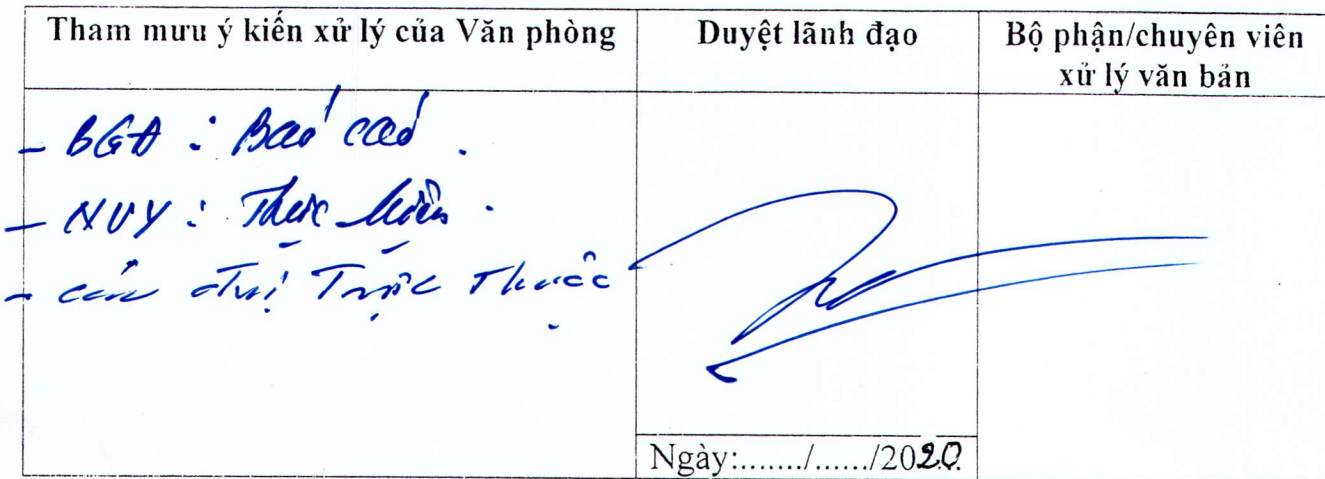 Tham mưu ý kiến xử lý của Văn phòng
Duyệt lãnh đạo
Bộ phận/chuyên viên
xử lý văn bản
- BGĐ : Báo cáo.
- NVY : Thực hiện.
- các đvị Trực Thuộc
Ngày:......./....../2020.